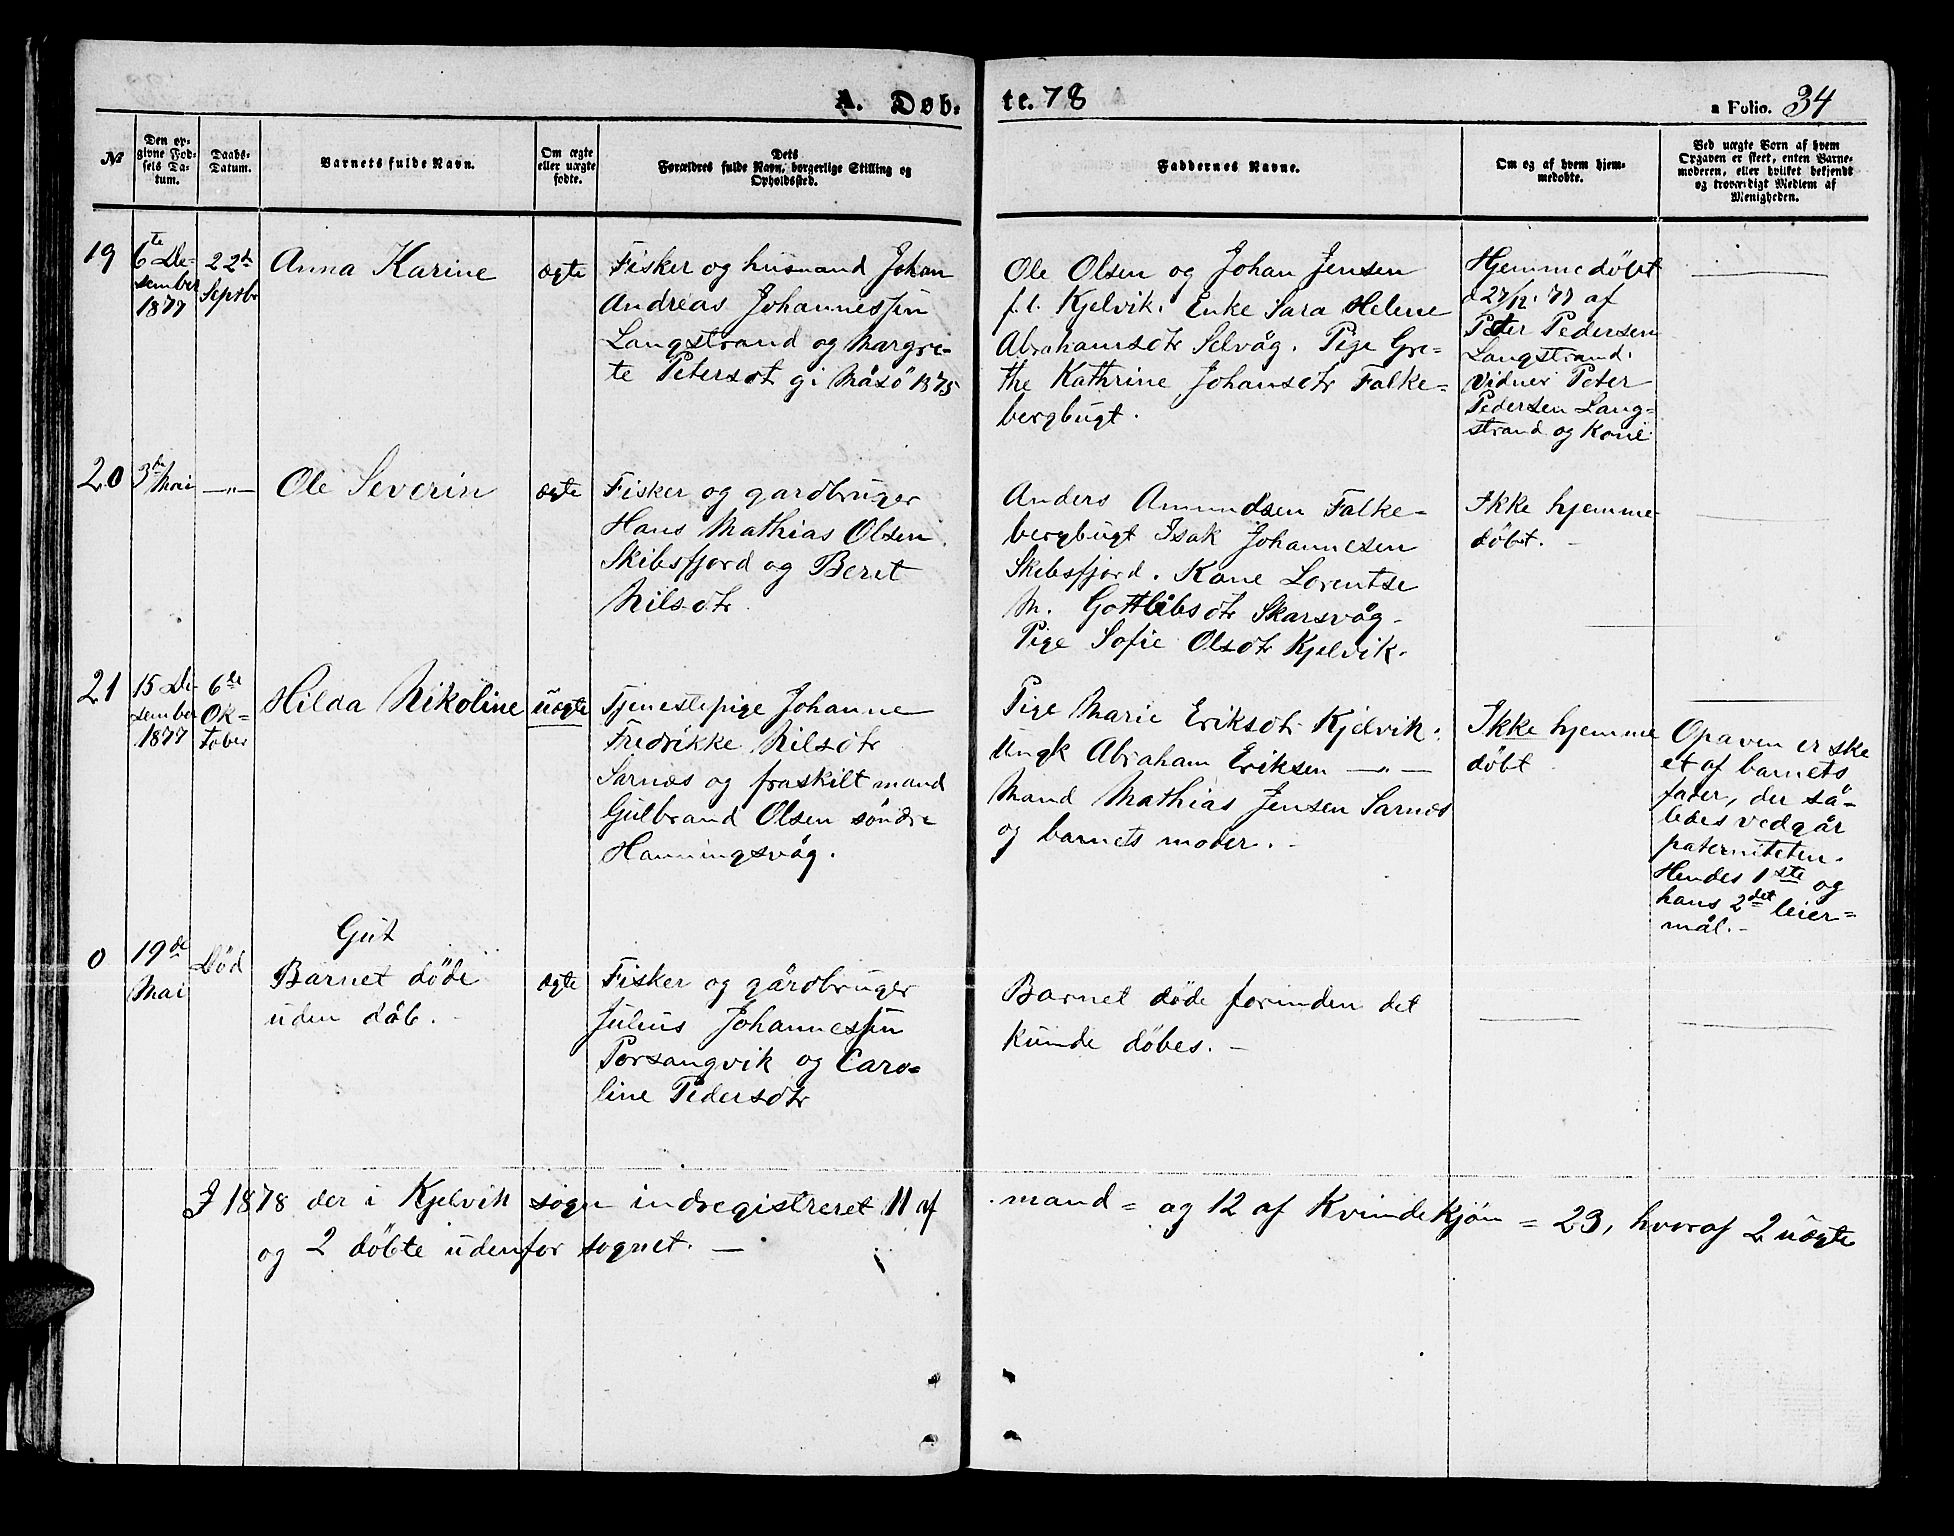 A. Døb-
te. 78
a Folio. 34
No
Den opgivne Fødsels Datum.
Daabs-Datum.
Barnets fulde Navn.
Om ægte eller uægte fødte.
Dets Forældres fulde Navn, borgerlige Stilling og Opholdssted.
Faddernes Navne.
Om og af hvem hjemmedøbte.
Ved uægte Børn af hvem Opgaven er skeet, enten Barnemoderen, eller hvilket bekjendt og troværdigt Medlem af Menigheden.
19
6te De=
sember
1877
22d
Septbr
Anna Karine
ægte
Fisker og husmand Johan
Andreas Johannessen
Langstrand og Margre=
te Petersdt gi Måsö 1875
Ole Olsen og Johan Jensen
f. l. Kjelvik. Enke Sara Helene
Abrahamsdtr Selvåg. Pige Gre=
the Kathrine Johansdtr Falke=
bergbugt.
Hjemmedöbt
d 27/12. 77 af
Peter Pedersen
Langstrand.
Vidner Peter
Pedersen Lang=
strand og Kone
20
3de Mai
—„—
Ole Severin
ægte
Fisker og gardbruger
Hans Mathias Olsen
Skibsfjord og Beret
Nilsdtr.
Anders Amundsen Falke=
bergbugt Isak Johannesen
Skibsfjord. Kone Lorentse
M. Gottlibsdtr Skarsvåg.
Pige Sofie Olsdtr Kjelvik.
Ikke hjemme
döbt. -
21
15 De
sember
1877
6te
Ok=
tober
Hilda Nikoline
uægte
Tjenestepige Johanne
Fredrikke Nilsdtr
Sarnæs og fraskilt mand
Gulbrand Olsen söndre
Honningsvåg.
Pige Marie Eriksdtr Kjelvik.
Ungk Abraham Eriksen —„—
Mand Mathias Jensen Sarnæs
og barnets moder. -
Ikke hjemme
döbt
Opaven er ske
et af barnets
fader, der så=
ledes vedgår
paterniteten.
Hendes 1ste og
hans 2det leier=
mål. -
0
19de
Mai
Död
Gut
Barnet döde
uden dåb. -
ægte
Fisker og gårdbruger
Julius Johannessen
Porsangvik og Caro=
line Pedersdtr
Barnet döde forinden det
kunde döbes. -
I 1878 der i Kjelvik sogn indregistreret 11 af mand= og 12 af Kvindekjön = 23, hvoraf 2 uægte
og 2 döbte udenfor sognet. —